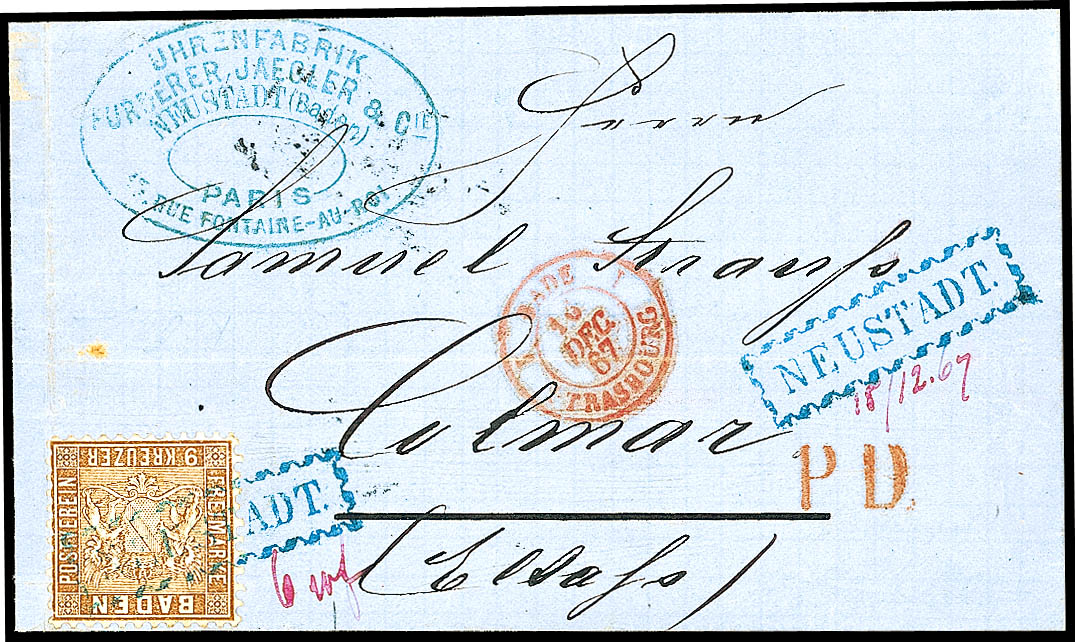 UHRENFABRIK
FURDERER, JAEGLER & CIE
NEUSTADT (Baden)
PARIS
RUE FONTAINE-AU-ROI
Herrn
Samuel Strauss
Colmar
(Elsass)
BADE
16
DEC
67
STRASBOURG
NEUSTADT.
18/12.67
P D.
9 KREUZER
POSTVEREIN
FREIMARKE
BADEN
ADT.
6